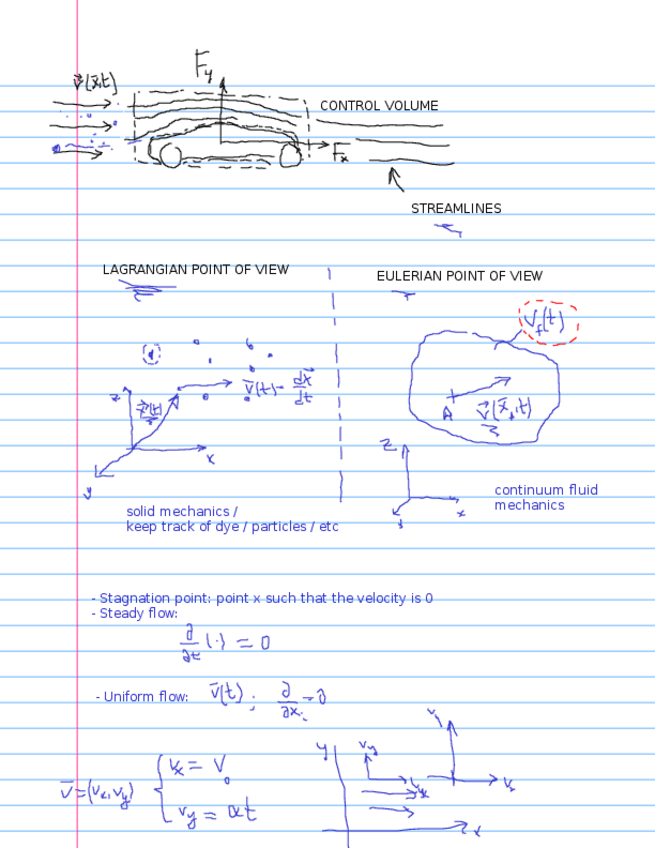 F_y
v⃗(x⃗,t)
CONTROL VOLUME
F_x
STREAMLINES
LAGRANGIAN POINT OF VIEW
EULERIAN POINT OF VIEW
V_f(t)
v⃗(t) = dx⃗/dt
z
x⃗(t)
A
v⃗(x⃗_A,t)
x
y
z
x
solid mechanics /
keep track of dye / particles / etc
continuum fluid
mechanics
- Stagnation point: point x such that the velocity is 0
- Steady flow:
∂/∂t (·) = 0
- Uniform flow: v⃗(t) ; ∂/∂x_i = 0
y
v_y
v_x
v⃗ = (v_x, v_y) { v_x = V_0
v_y = αt
x